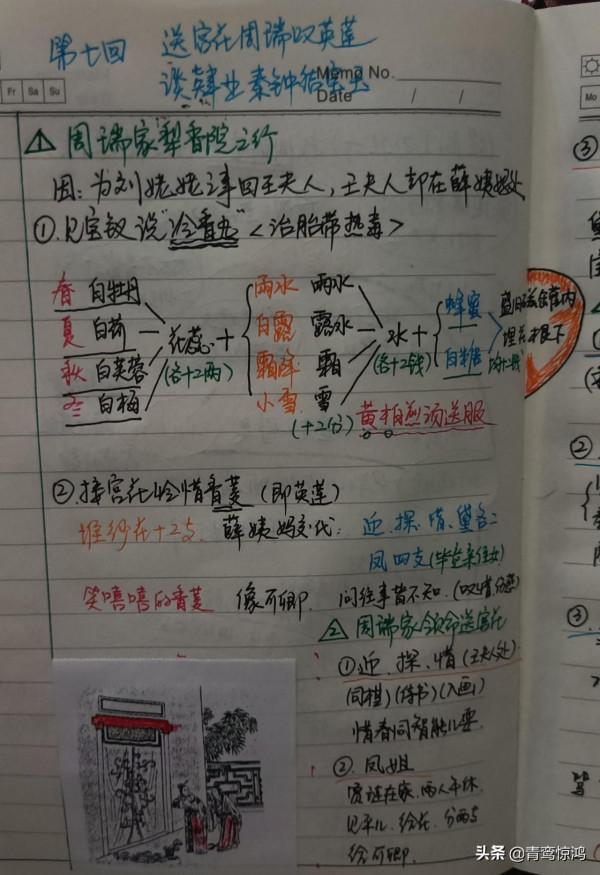 第七回 送宫花周瑞叹英莲
谈肄业秦钟结宝玉
Memo No.
Date / /
Fr Sa Su
1 周瑞家梨香院之行
因:为刘姥姥之事回王夫人,王夫人却在薛姨妈处
①.见宝钗说"冷香丸"<治胎带热毒>
春 白牡丹
夏 白荷
秋 白芙蓉
冬 白梅
花蕊 +
(各十二两)
雨水 雨水
白露 露水
霜降 霜
小雪 雪
(十二分)
水 +
(各十二钱)
蜂蜜
白糖
黄柏煎汤送服
②.接宫花
怜惜香菱(即英莲)
堆纱花十二支.
薛姨妈交代:
迎.探.惜.黛各二
凤四支
笑嘻嘻的香菱
像可卿.
问往事皆不知.
2 周瑞家领命送宫花
①迎.探.惜(王夫人处)
(司棋)(待书)(入画)
惜春同智能儿耍.
②.凤姐
贾琏在家.两人午休
见平儿.给花.分两支
给可卿.
Mo
③
②
③
头条 @青鸾惊鸿